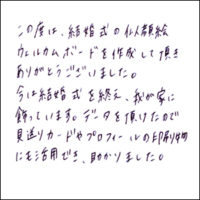 この度は、結婚式の似顔絵
ウェルカムボードを作成して頂き
ありがとうございました。
今は結婚式を終え、我が家に
飾っています。データを頂けたので
見送りカードやプロフィールの印刷物
にも活用でき、助かりました。